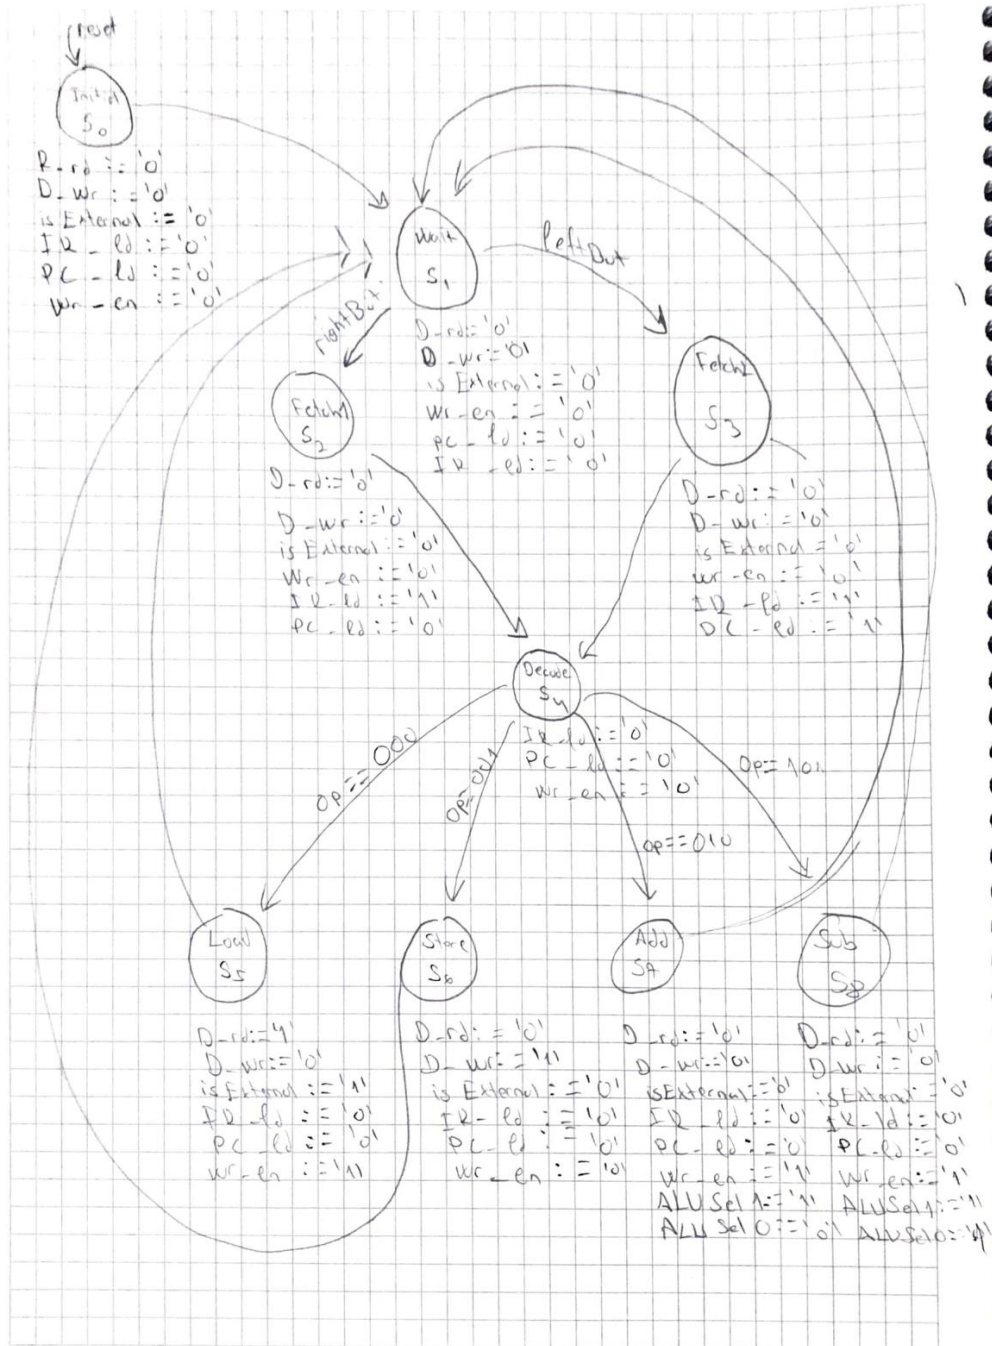 reset
Initial
S0
R-rd := '0'
D-wr := '0'
isExternal := '0'
IR-ld := '0'
PC-ld := '0'
wr-en := '0'
Wait
S1
leftBut
rightBut
D-rd := '0'
D-wr := '0'
isExternal := '0'
Wr-en := '0'
PC-ld := '0'
IR-ld := '0'
Fetch1
S2
D-rd := '0'
D-wr := '0'
isExternal := '0'
Wr-en := '0'
IR-ld := '1'
PC-ld := '0'
Fetch2
S3
D-rd := '0'
D-wr := '0'
isExternal = '0'
wr-en := '0'
IR-ld := '1'
PC-ld := '1'
Decode
S4
IR-ld := '0'
PC-ld := '0'
wr-en := '0'
op==000
op=001
op==010
op=101
Load
S5
D-rd:='1'
D-wr:='0'
isExternal := '1'
IR-ld := '0'
PC-ld := '0'
wr-en := '1'
Store
S6
D-rd := '0'
D-wr := '1'
isExternal := '0'
IR-ld := '0'
PC-ld := '0'
wr-en := '0'
Add
S7
D-rd := '0'
D-wr:='0'
isExternal:='0'
IR-ld := '0'
PC-ld := '0'
wr-en := '1'
ALUSel1:='1'
ALUSel0:='0'
Sub
S8
D-rd := '0'
D-wr := '0'
isExternal := '0'
IR-ld := '0'
PC-ld := '0'
Wr-en := '1'
ALUSel1:='1'
ALUSel0:='1'